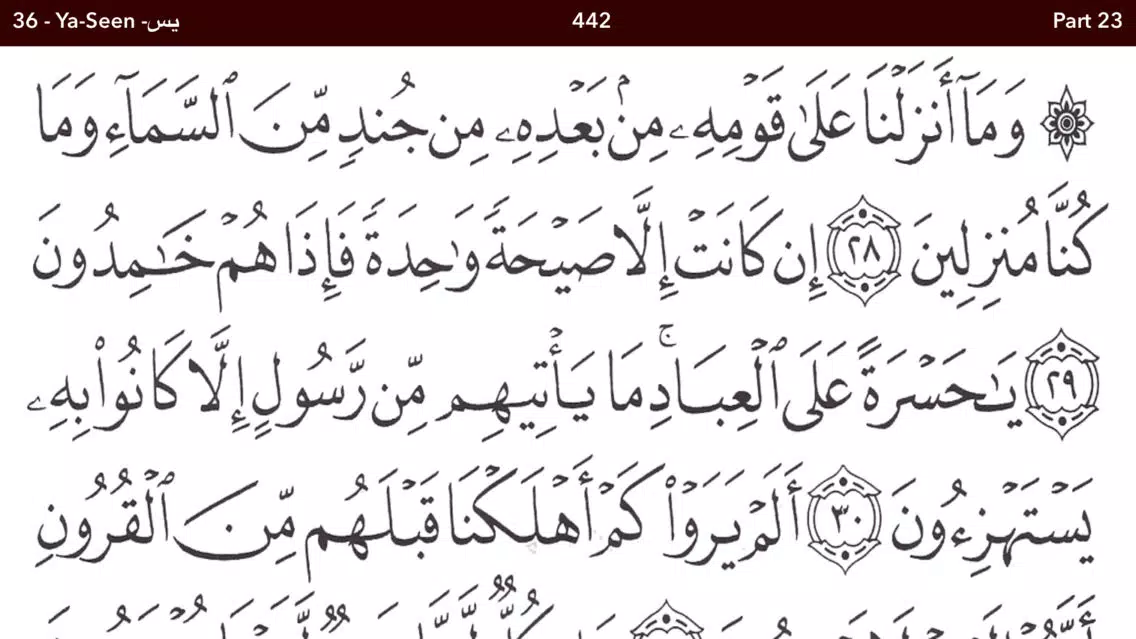 36 - Ya-Seen -يس 442 Part 23
۞ وَمَآ أَنزَلْنَا عَلَىٰ قَوْمِهِۦ مِنۢ بَعْدِهِۦ مِن جُندٍ مِّنَ ٱلسَّمَآءِ وَمَا
كُنَّا مُنزِلِينَ ٢٨ إِن كَانَتْ إِلَّا صَيْحَةً وَٰحِدَةً فَإِذَا هُمْ خَٰمِدُونَ
٢٩ يَٰحَسْرَةً عَلَى ٱلْعِبَادِ ۚ مَا يَأْتِيهِم مِّن رَّسُولٍ إِلَّا كَانُوا۟ بِهِۦ
يَسْتَهْزِءُونَ ٣٠ أَلَمْ يَرَوْا۟ كَمْ أَهْلَكْنَا قَبْلَهُم مِّنَ ٱلْقُرُونِ